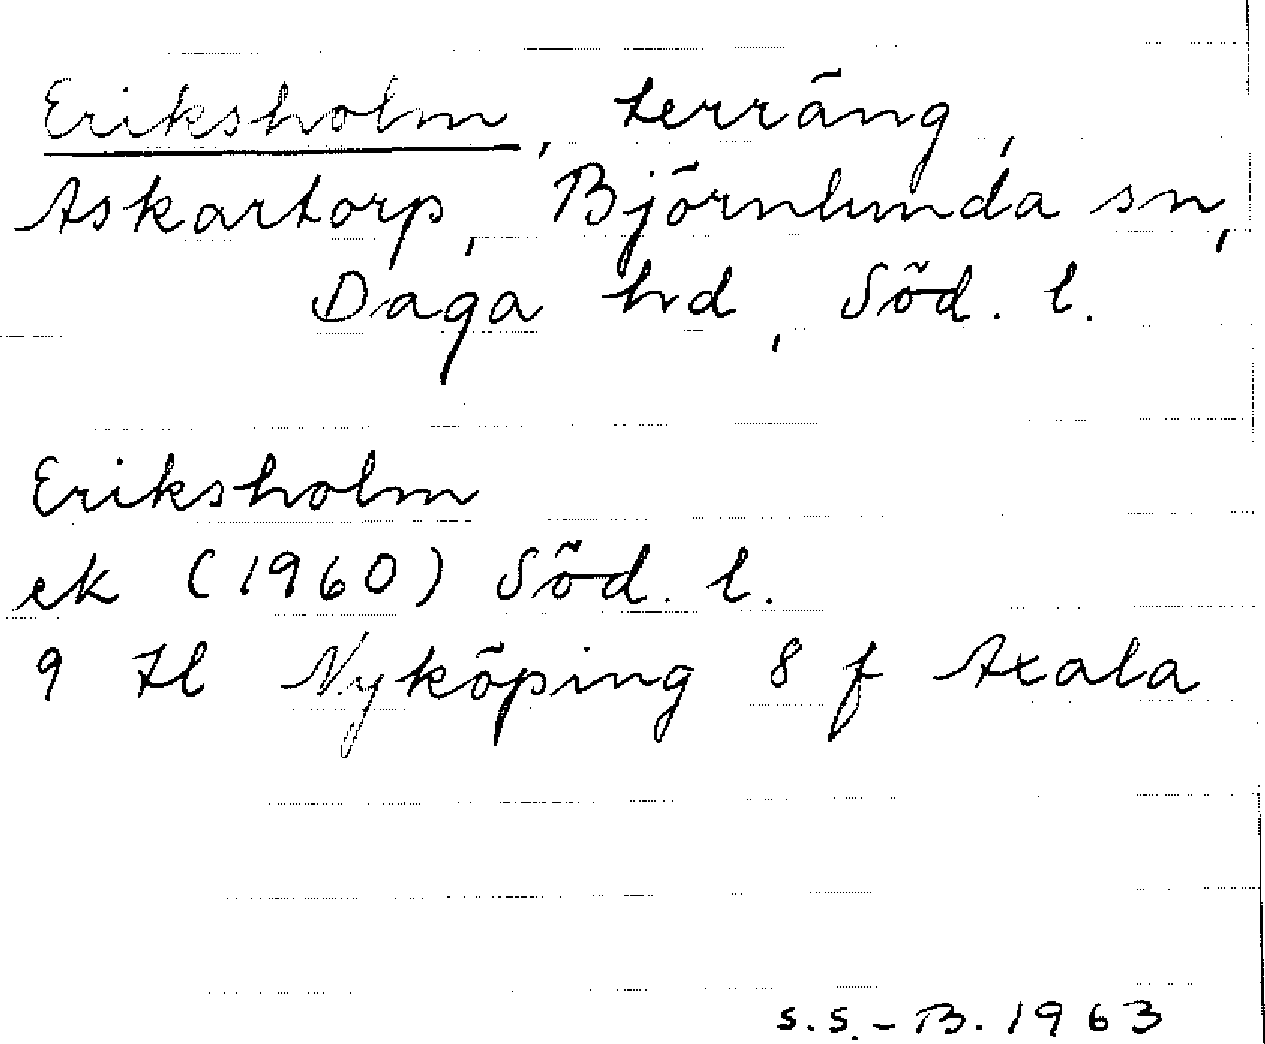 Eriksholm, terräng,
Askartorp, Björnlunda sn,
Daga hd, Söd. l.
Eriksholm
ek (1960) Söd. l.
9 Hl Nyköping 8 f Axala
S.S.-B. 1963